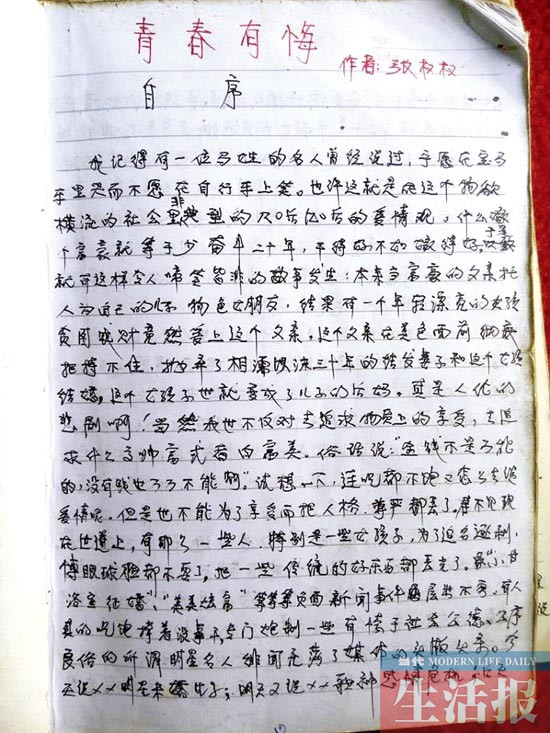 青春有悔
作者:张权权
自序
我记得有一位马姓的名人曾经说过,宁愿在宝马
车里哭而不愿在自行车上笑。也许这就是在这个物欲
横流的社会里典型的70后80后的爱情观。什么嫁
个富豪就等于少奋斗二十年,干得好不如嫁得好
就有这样令人啼笑皆非的故事发生:本来当富豪的父亲托
人为自己的儿子物色女朋友,结果有一个年轻漂亮的女孩
贪图钱财竟然爱上这个父亲,这个父亲在美色面前
把持不住,抛弃了相濡以沫三十年的结发妻子和这个女孩
结婚,这个女孩子也就变成了儿子的后妈。真是人伦的
悲剧啊!当然我也不反对去追求物质上的享受,去追
求什么高帅富或者白富美。俗话说:"金钱不是万能
的,没有钱也万万不能啊"。试想一下,连吃都不饱又怎么去谈
爱情呢。但是也不能为了享受而把人格,尊严都丢了。
在世道上,有那么一些人.特别是一些女孩子,为了追名逐利,
博眼球脸都不要了,把一些传统的好东西都丢光了。
浴室征婚","炫富"等等负面新闻事件层出不穷。有人
真的吃饱撑着没事干,专门炮制一些有悖于社会公德、公序
良俗的所谓明星名人绯闻充满了媒体的头版头条。今
天说××明星未婚生子;明天又说××
当代 MODERN LIFE DAILY
生活报